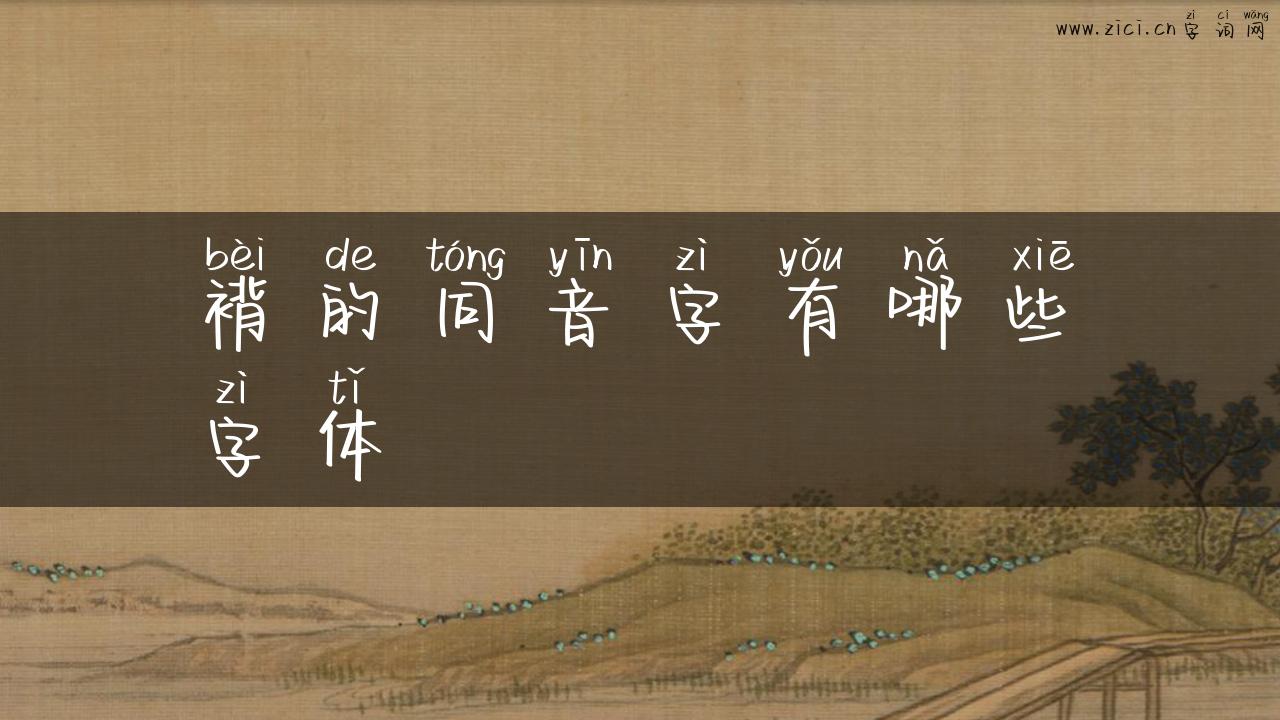 zì cí wǎng
www.zici.cn字词网
bèi de tóng yīn zì yǒu nǎ xiē
褙的同音字有哪些
zì tǐ
字体